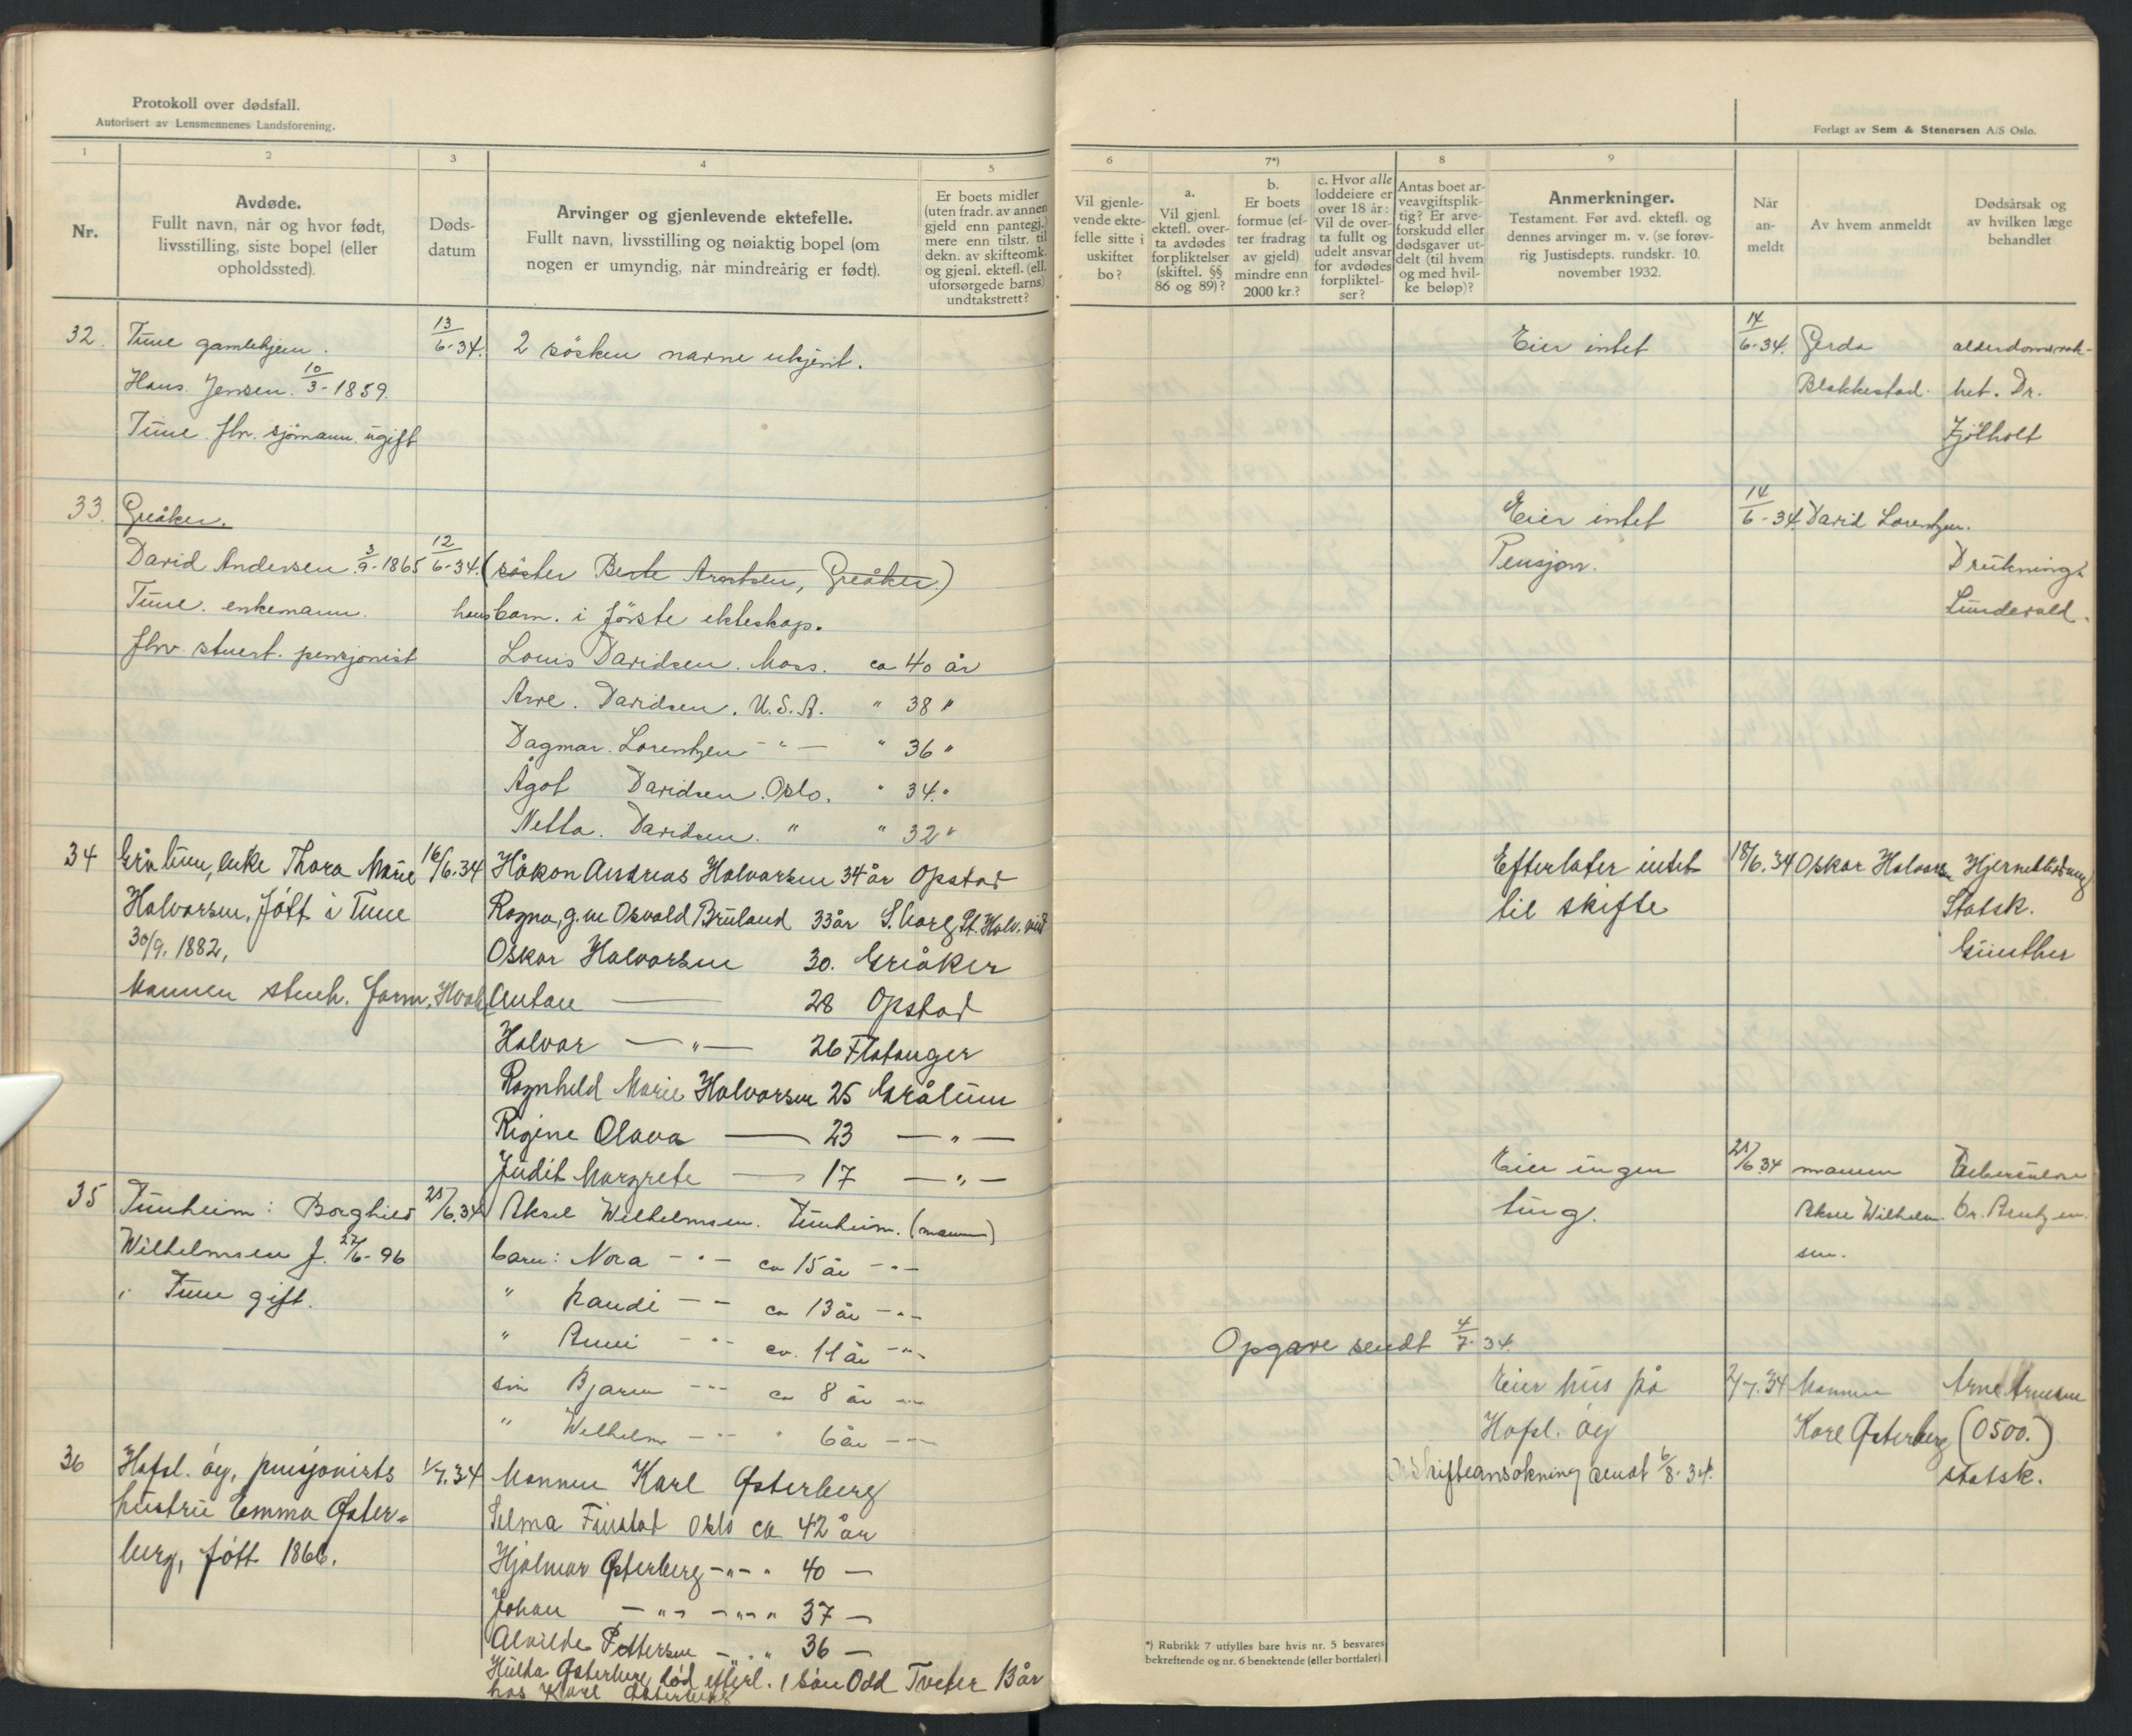 Protokoll over dødsfall.
Autorisert av Lensmennenes Landsforening.
1
2
3
4
5
Nr.
Avdøde.
Fullt navn, når og hvor født,
livsstilling, siste bopel (eller
opholdssted).
Døds-
datum
Arvinger og gjenlevende ektefelle.
Fullt navn, livsstilling og nøiaktig bopel (om
nogen er umyndig, når mindreårig er født).
Er boets midler
(uten fradr. av annen
gjeld enn pantegj.)
mere enn tilstr. til
dekn. av skifteomk.
og gjenl. ektefl. (ell.
uforsørgede barns)
undtakstrett?
32. Tune gamlehjem. 13/6-34. 2 søsken navne ukjent.
Hans Jensen. 10/3-1859.
Tune. fhv. sjømann. ugift
33. Greåker.
David Andersen. 3/9-1865 12/6-34. (søster Berte Arntsen, Greåker.)
Tune. enkemann. hans barn. i første ekteskap.
fhv. stuert. pensjonist Louis Davidsen. Moss. ca 40 år
Arne. Davidsen. U.S.A. " 38 "
Dagmar. Lorentzen - " - " 36 "
Ågot Davidsen. Oslo. " 34. "
Netta. Davidsen. " " 32 "
34 Grålum, enke Thora Marie 16/6.34 Håkon Andreas Halvorsen 34 år Opstad
Halvorsen, født i Tune Ragna, g.m Osvald Bruland 33 år S.borg St. Halv. vei
30/9. 1882, Oskar Halvorsen 30. Greåker
Mannen stuch. form. Anton — 28 Opstad
Halvor — " — 26 Flatanger
Ragnhild Marie Halvorsen 25 Grålum
Rigine Olava — 23 — " —
Judit Margrete — 17 — " —
35 Tunheim: Borghild 21/6.34 Aksel Wilhelmsen. Tunheim. (mannen)
Wilhelmsen f. 27/6-96 barn: Nora - " - ca 15 år - " -
i Tune gift. " Randi - - ca 13 år - " -
" Anni - " - ca. 11 år - " -
søn Bjarne - " - ca 8 år - " -
" Wilhelm - " - " 6 år - " -
36 Hafsl. øy, pensjonists 1/7.34 Mannen Karl Østerberg
hustru Emma Øster-
berg, født 1866.
Selma Finstad Oslo ca 42 år
Hjalmar Østerberg - " - " 40 —
Johan - " - - " - " 37 —
Alvilde Pettersen - " - " 36 —
Hulda Østerberg død efterl. 1 søn Odd Tveter 13 år
hos Karl Østerberg
Forlagt av Sem & Stenersen A/S Oslo.
6
7*)
8
9
Vil gjenle-
vende ekte-
felle sitte i
uskiftet
bo?
a.
Vil gjenl.
ektefl. over-
ta avdødes
forpliktelser
(skiftel. §§
86 og 89)?
b.
Er boets
formue (ef-
ter fradrag
av gjeld)
mindre enn
2000 kr.?
c. Hvor alle
loddeiere er
over 18 år:
Vil de over-
ta fullt og
udelt ansvar
for avdødes
forpliktel-
ser?
Antas boet ar-
veavgiftsplik-
tig? Er arve-
forskudd eller
dødsgaver ut-
delt (til hvem
og med hvil-
ke beløp)?
Anmerkninger.
Testament. Før avd. ektefl. og
dennes arvinger m. v. (se forøv-
rig Justisdepts. rundskr. 10.
november 1932.
Når
an-
meldt
Av hvem anmeldt
Dødsårsak og
av hvilken læge
behandlet
Eier intet 14/6-34. Gerda alderdomsvak-
Blakkestad. het. Dr.
Kjølholt
Eier intet 14/6-34. David Lorentzen.
Pensjon. Drukning.
Lundevald.
Efterlater intet 18/6.34 Oskar Halvorsen Hjerneblødning
til skifte Statsk.
Günther
Eier ingen 21/6.34 mannen Tuberculose
ting. Aksel Wilhelm- Dr. Arntzen.
sen.
Opgave sendt 4/7-34.
Eier hus på 2/7.34 Mannen Arne Arnesen
Hafsl. øy Karl Østerberg (0500.)
Skifteansøkning sendt 6/8-34. statsk.
*) Rubrikk 7 utfylles bare hvis nr. 5 besvares
bekreftende og nr. 6 benektende (eller bortfaler).